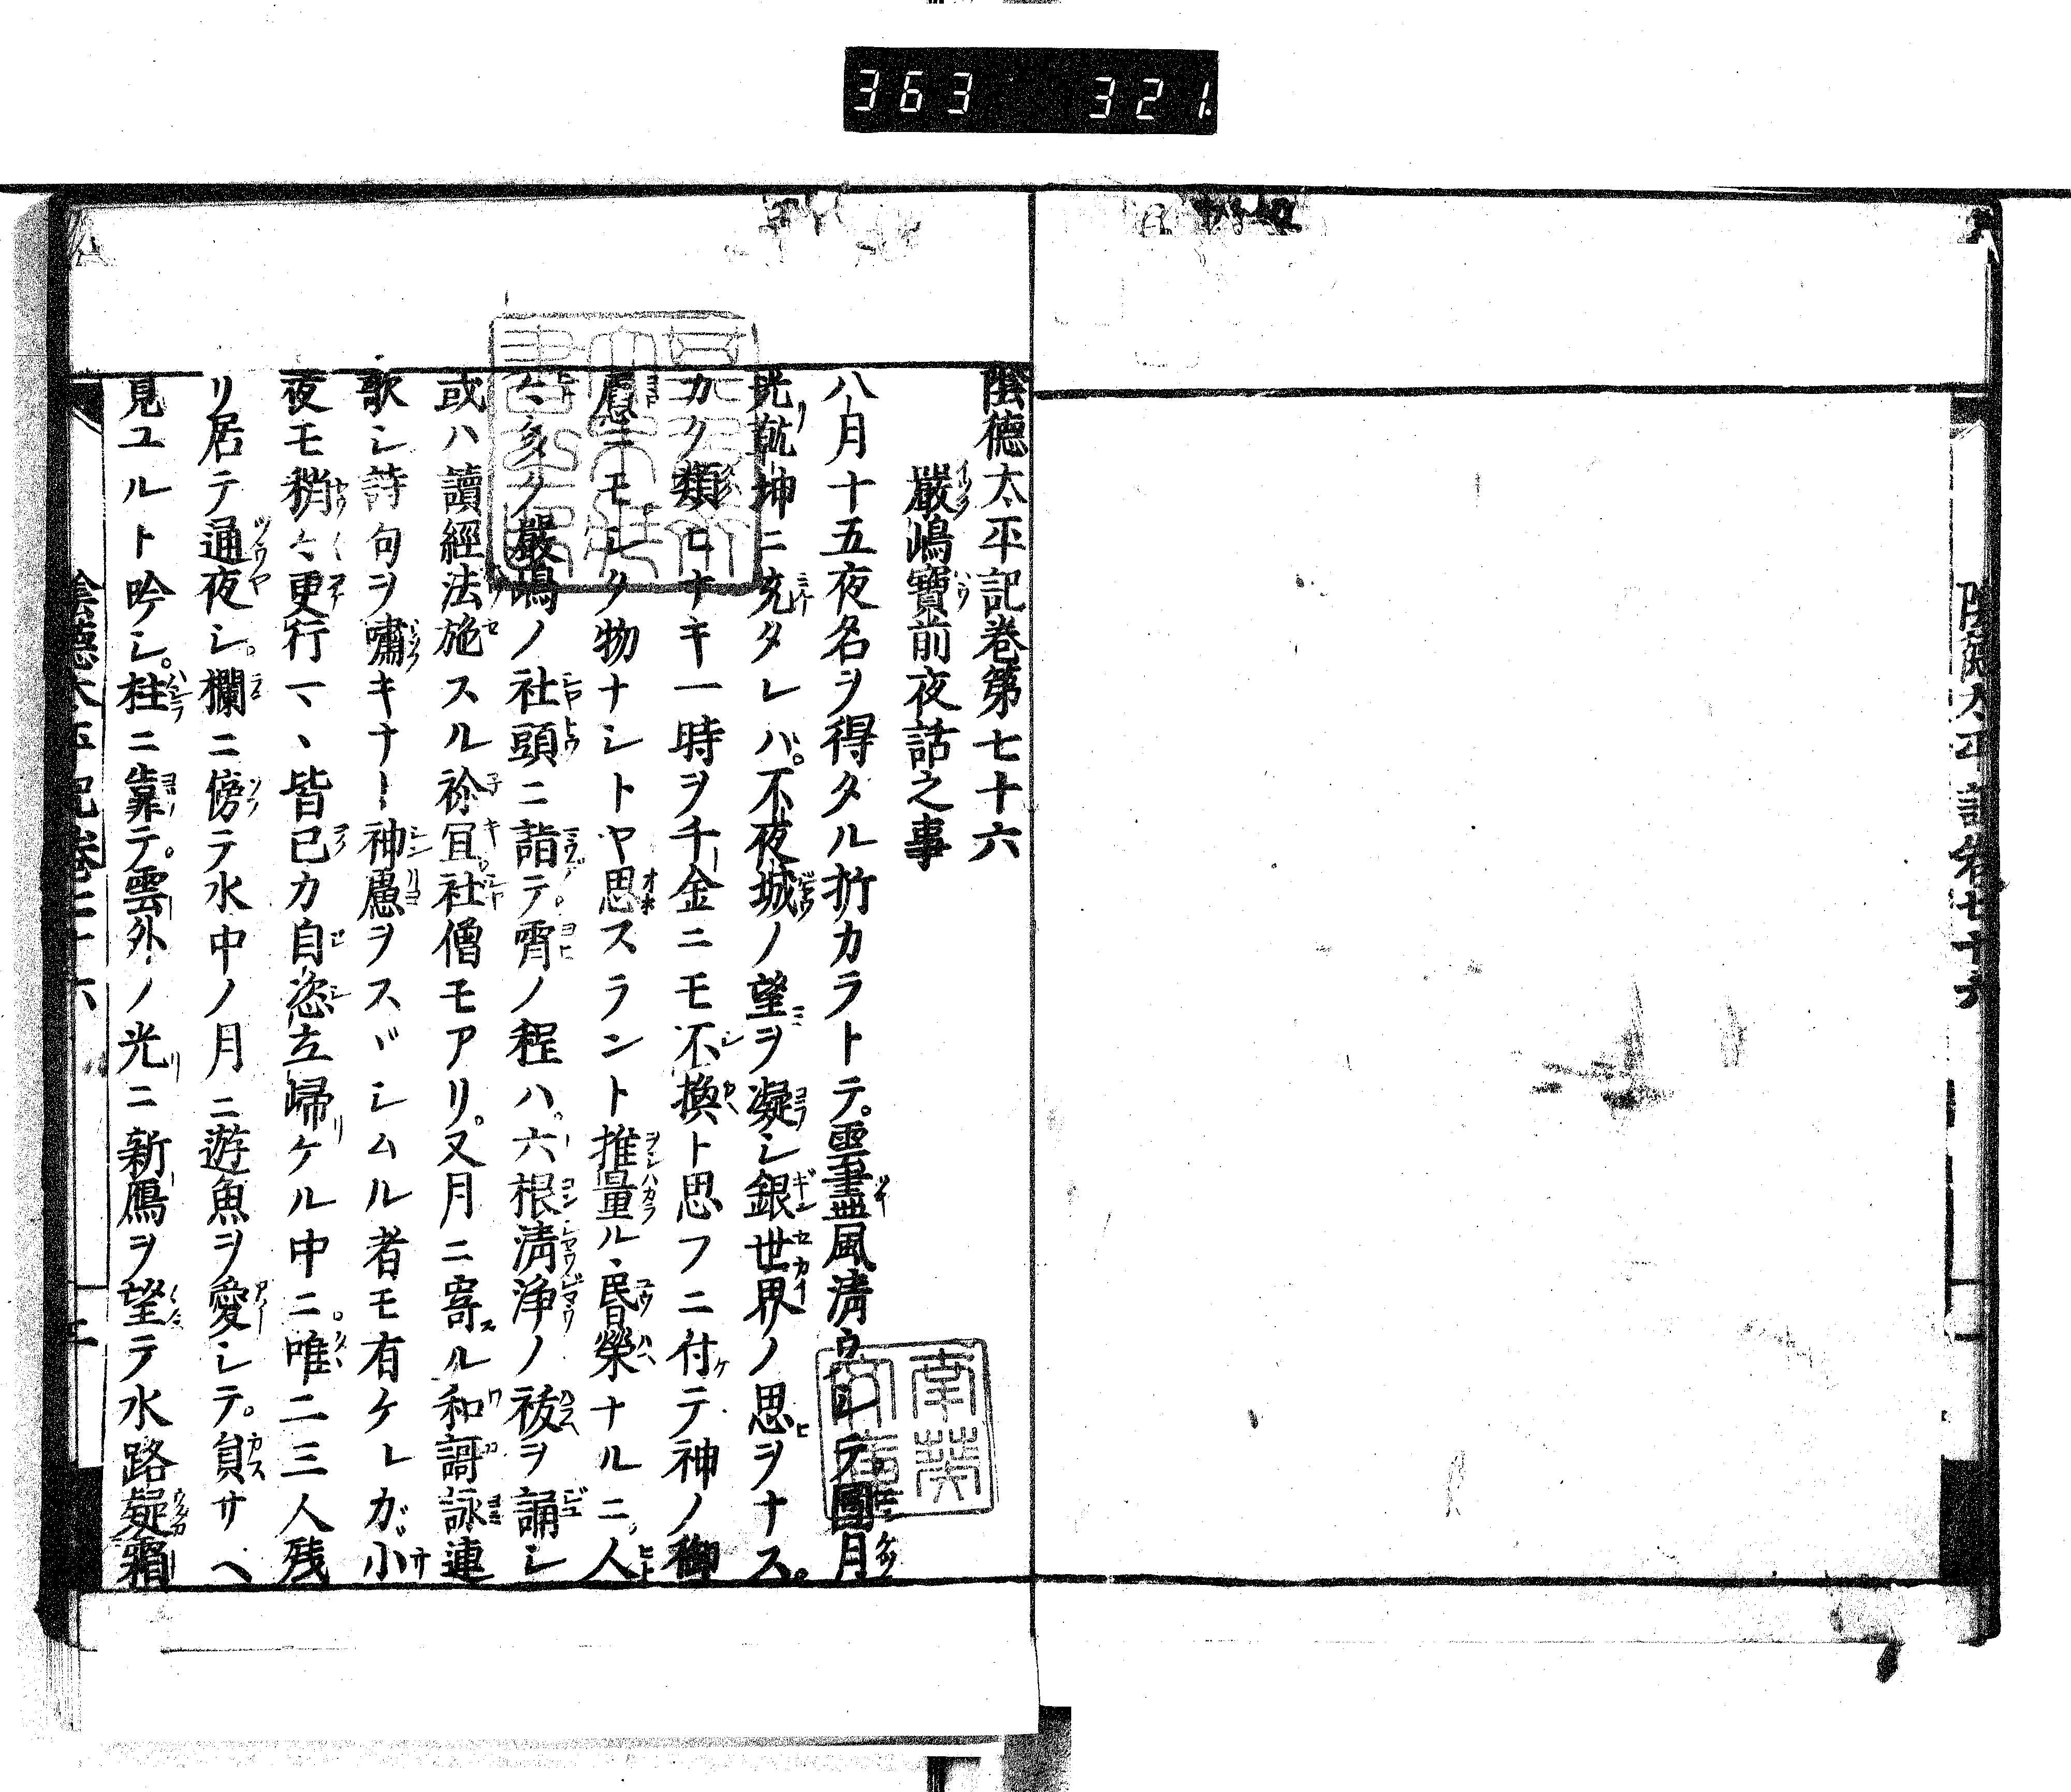 363 321
陰徳太平記巻第七十六
陰徳太平記巻第七十六
嚴嶋寶前夜話之事
八月十五夜名ヲ得タル折カラトテ。雲盡風清ウシテ團月
晄乾坤ニ充タレバ。不夜城ノ望ヲ凝シ銀世界ノ思ヲナス。
カク類ヒナキ一時ヲ千金ニモ不換ト思フニ付テ神ノ御
慮ニモレタ物ナシトヤ思スラント推量ル、昏榮ナルニ、人
〻多ク嚴嶋ノ社頭ニ詣テ。霄ノ程ハ。六根清浄ノ祓ヲ誦シ
或ハ讀經法施スル祢宜社僧モアリ。又月ニ寄ル和謌詠連
歌シ詩句ヲ嘯キナドシ神慮ヲスヾシムル者モ有ケレガ。小
夜モ稍〻更行ヽヽ皆己カ自恣立歸ケル中ニ。唯二三人残
リ居テ通夜シ。欄ニ傍テ水中ノ月ニ遊魚ヲ愛シテ。負サヘ
見ユルト吟シ。柱ニ靠テ。雲外ノ光ニ新鴈ヲ望テ水路疑霜
陰徳太平記巻七十六